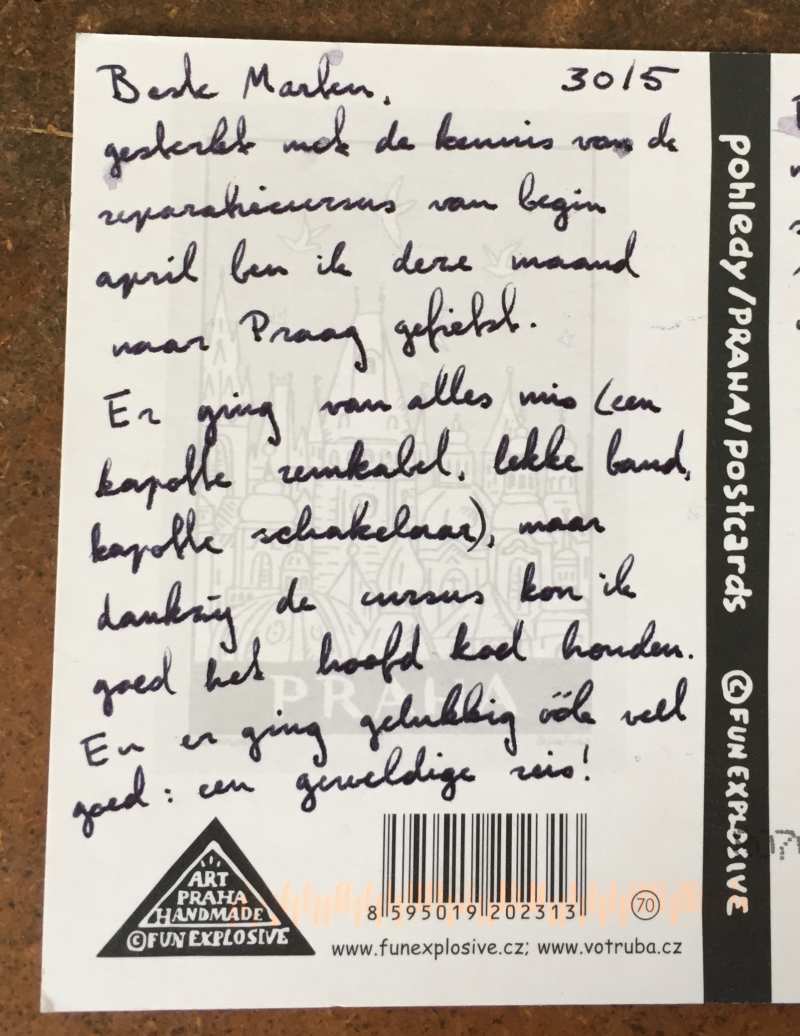 Beste Marten, 30/5
gesterkt met de kennis van de
reparatiecursus van begin
april ben ik deze maand
naar Praag gefietst.
Er ging van alles mis (een
kapotte remkabel, lekke band,
kapotte schakelaar), maar
dankzij de cursus kon ik
goed het hoofd koel houden.
En er ging gelukkig óók veel
goed: een geweldige reis!
PRAHA
ART
PRAHA
HANDMADE
© FUN EXPLOSIVE
8 595019 202313
70
www.funexplosive.cz; www.votruba.cz
pohledy/PRAHA/postcards © FUN EXPLOSIVE